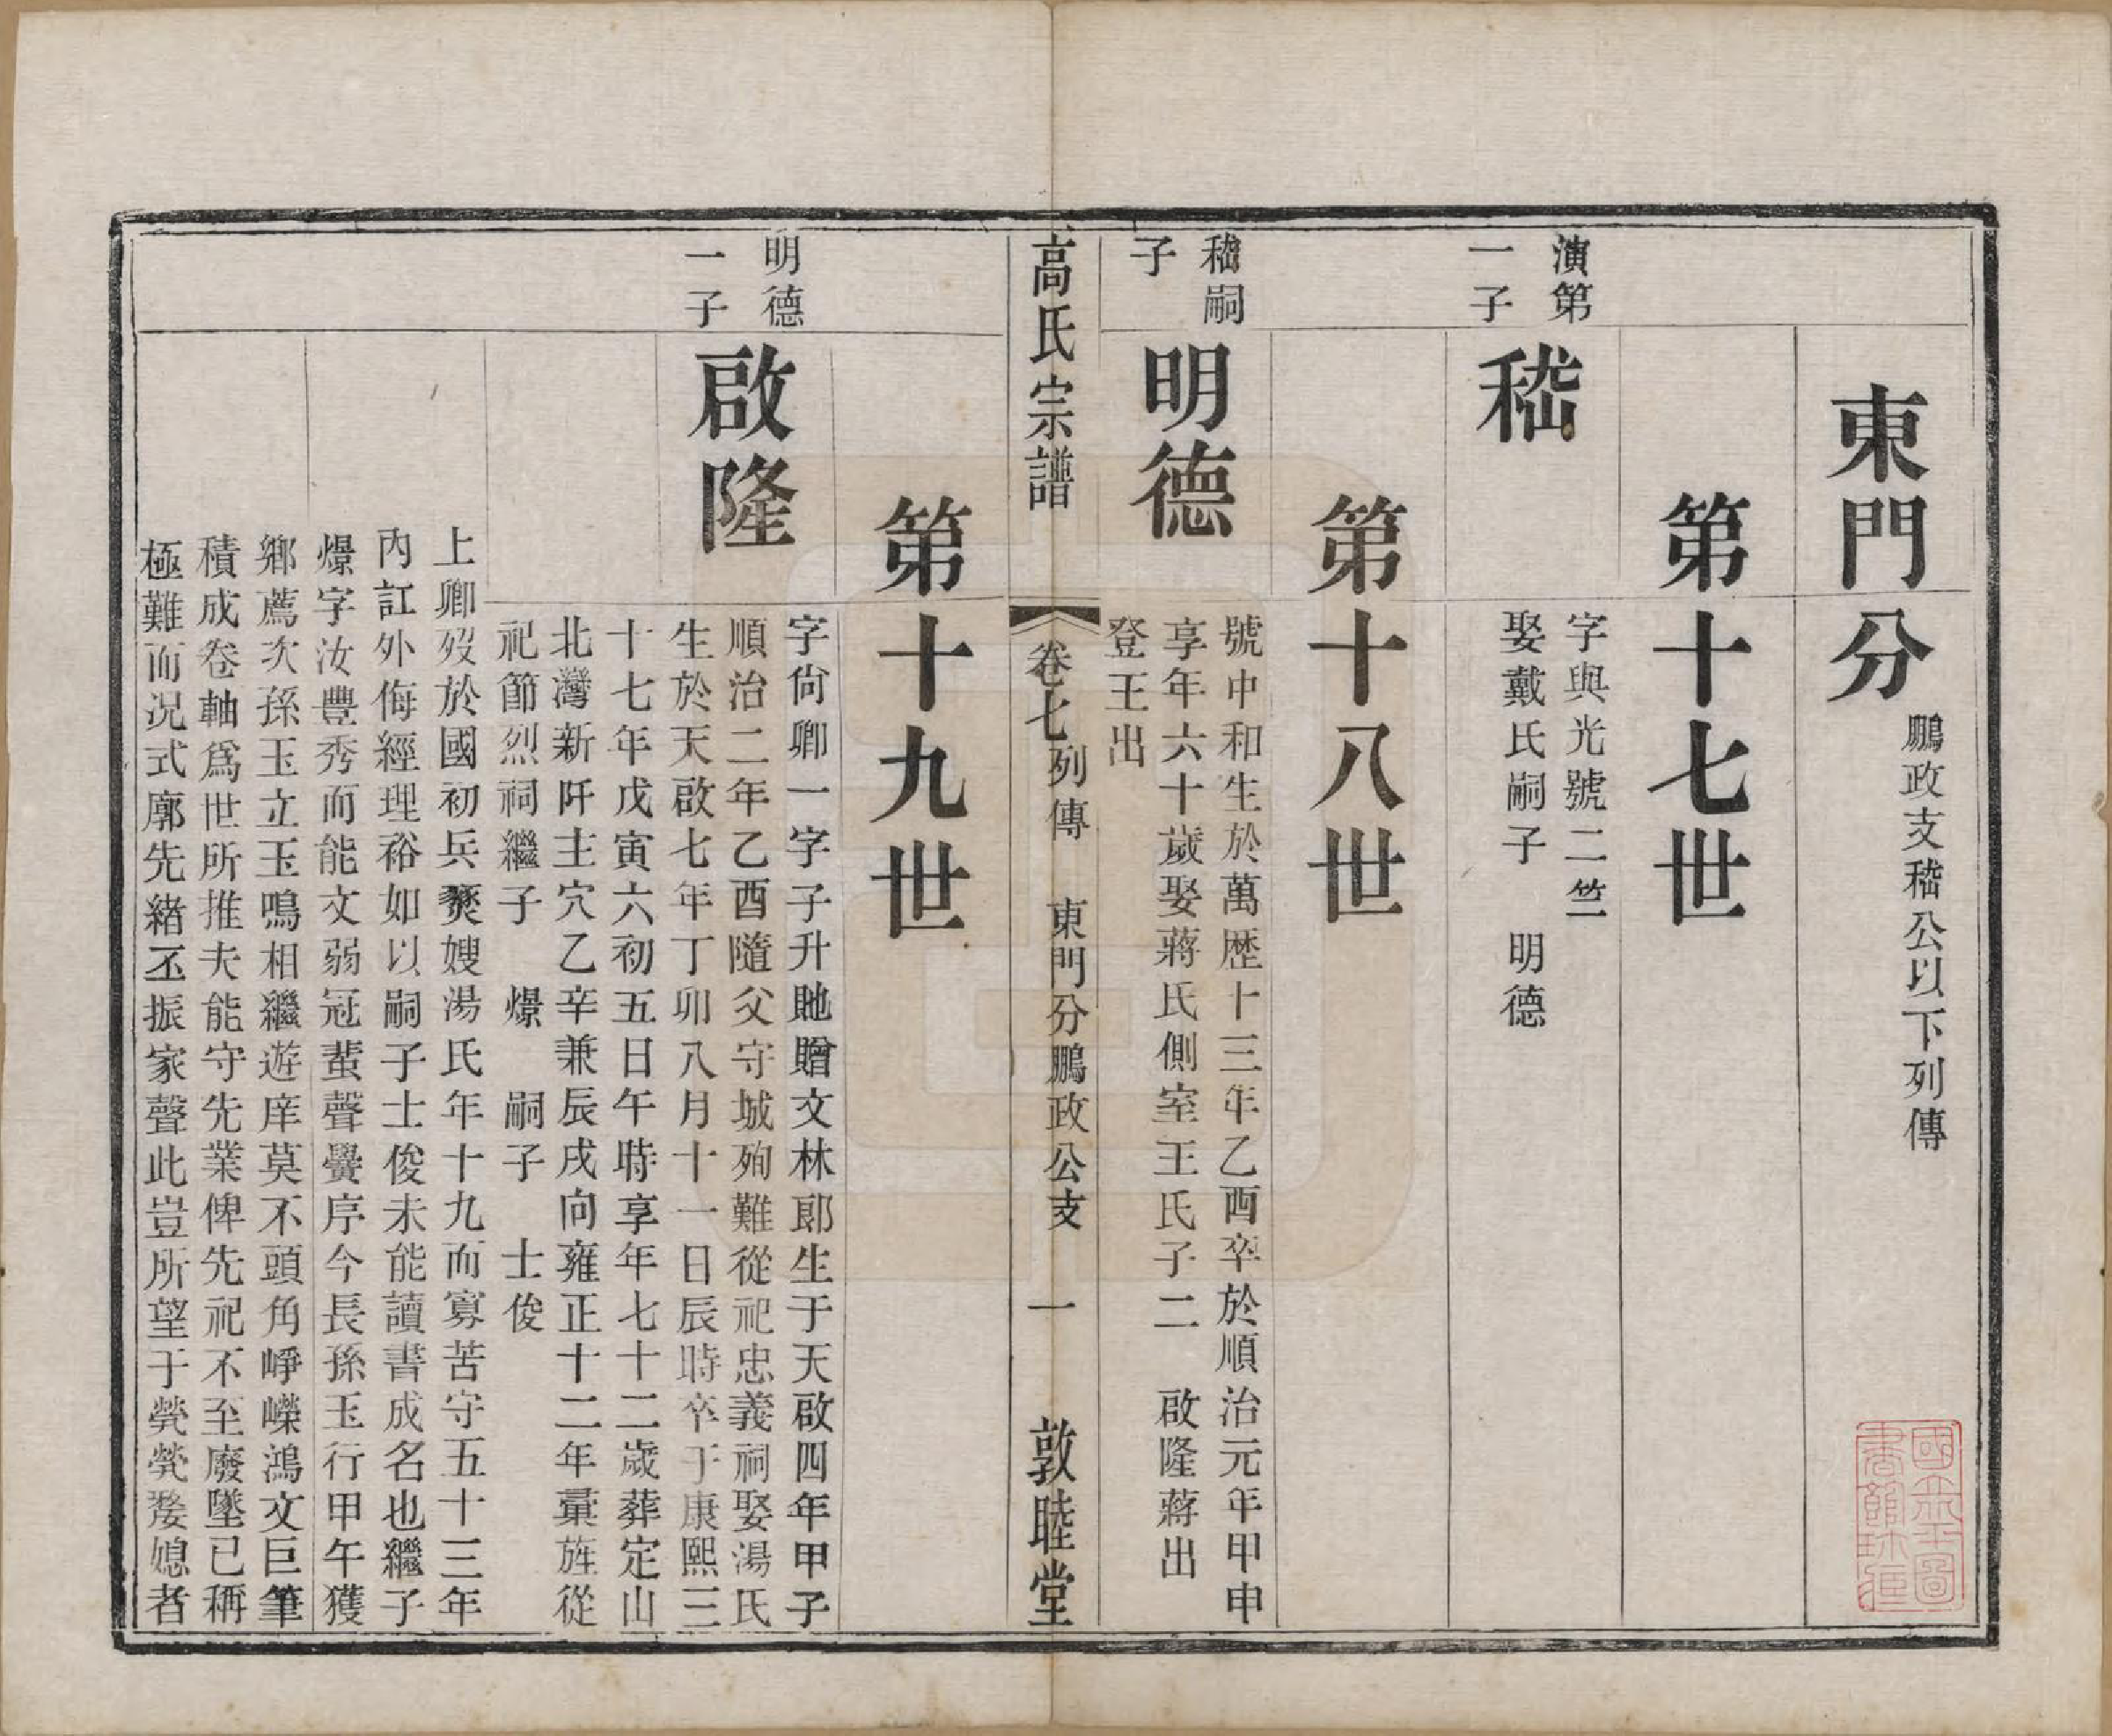 東門分
鵬政支嵇公以下列傳
第十七世
演第
一子
嵇
字與光號二竺
娶戴氏嗣子 明德
第十八世
嵇嗣
子
明德
號中和生於萬歷十三年乙酉卒於順治元年甲申
享年六十歲娶蔣氏側室王氏子二 啟隆蔣出
登王出
高氏宗譜
卷七
列傳 東門分鵬政公支
一
敦睦堂
第十九世
明德
一子
啟隆
字尙卿一字子升貤贈文林郎生于天啟四年甲子
順治二年乙酉隨父守城殉難從祀忠義祠娶湯氏
生於天啟七年丁卯八月十一日辰時卒于康熙三
十七年戊寅六初五日午時享年七十二歲葬定山
北灣新阡主穴乙辛兼辰戌向雍正十二年彙旌從
祀節烈祠繼子 爆 嗣子 士俊
上卿歿於國初兵燹嫂湯氏年十九而寡苦守五十三年
內訌外侮經理裕如以嗣子士俊未能讀書成名也繼子
爆字汝豐秀而能文弱冠蜚聲黌序今長孫玉行甲午獲
鄉薦次孫玉立玉鳴相繼遊庠莫不頭角崢嶸鴻文巨筆
積成卷軸爲世所推夫能守先業俾先祀不至廢墜已稱
極難而況式廓先緒丕振家聲此豈所望于煢煢嫠媳者